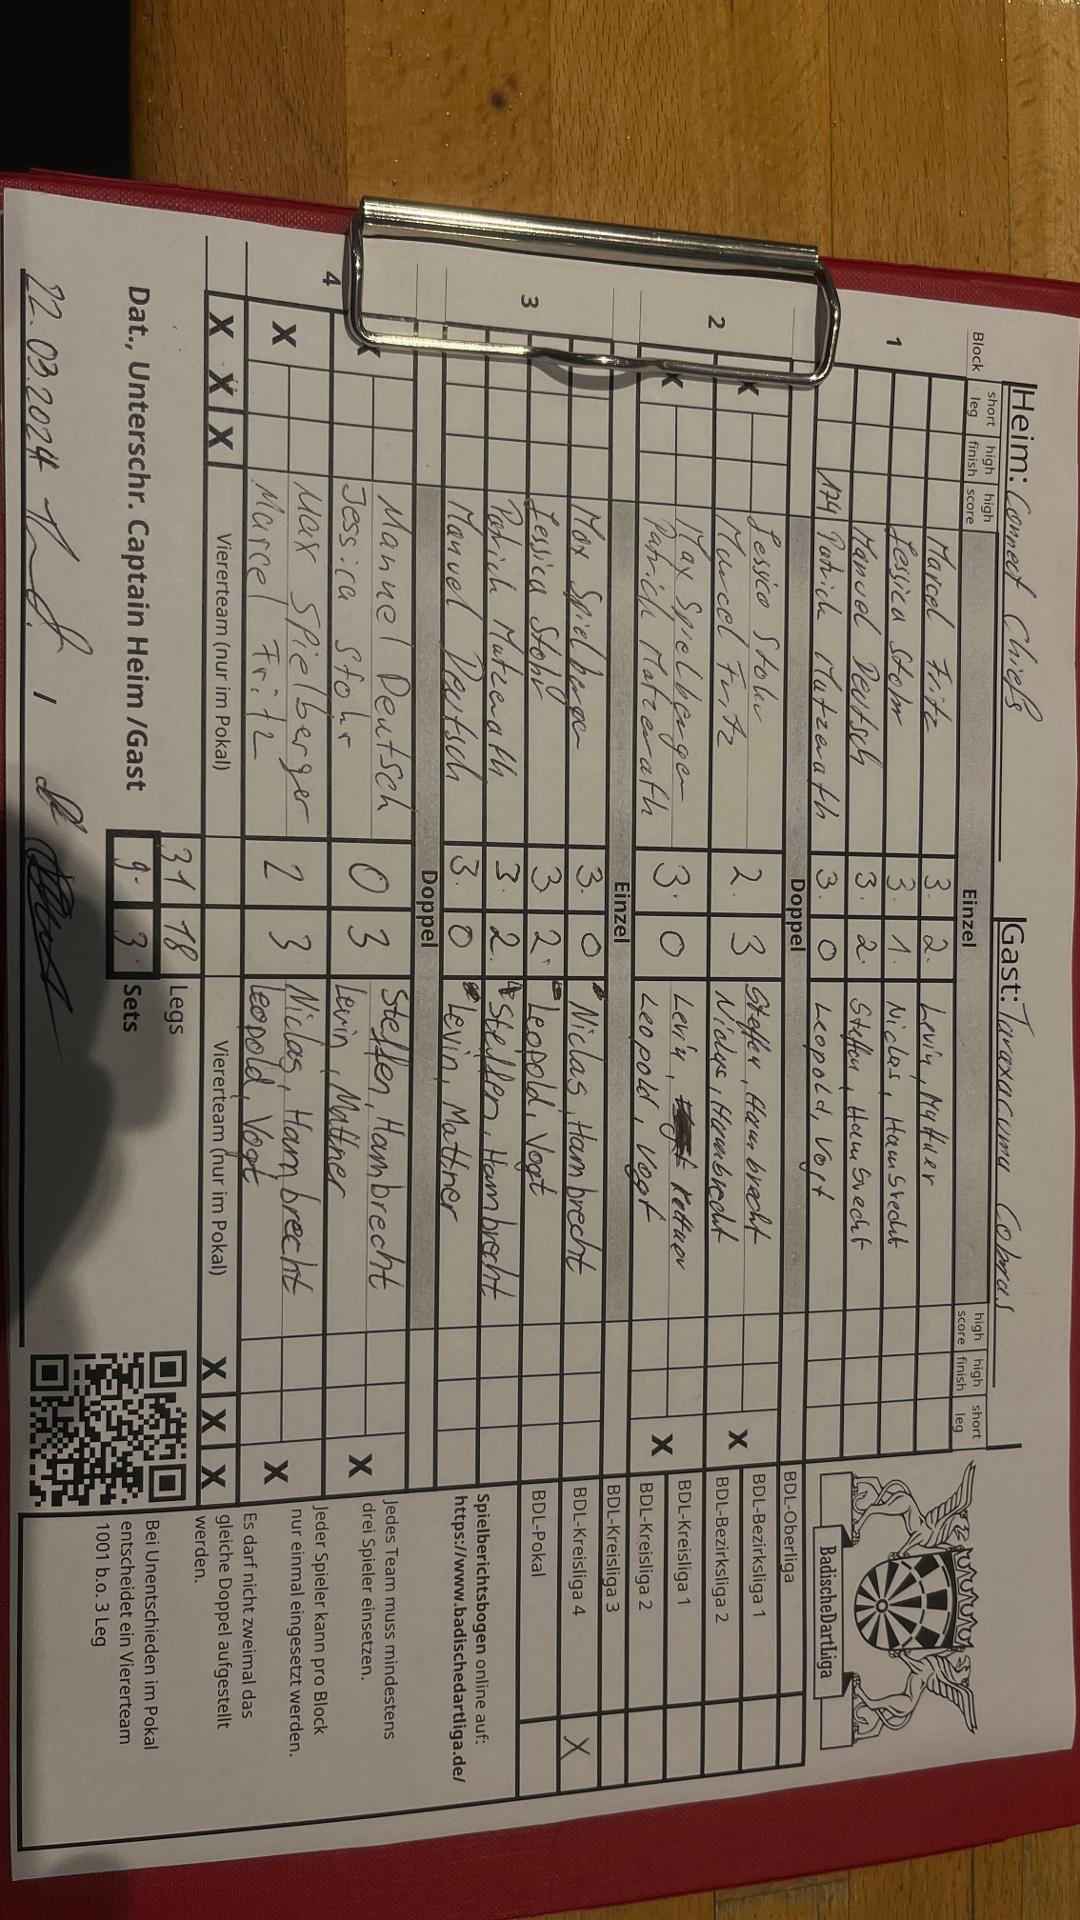 Heim: Connect Chiefs Gast: Taraxacumu Cobras
Block short leg high finish high score Einzel high score high finish short leg
1
Marcel Fritz 3. 2. Levin, Mattner
Jessica Stohr 3. 1. Niclas, Hambrecht
Manuel Deutsch 3. 2. Steffen, Hambrecht
174 Patrick Matzerath 3. 0 Leopold, Vogt
Doppel
2
X Jessica Stohr 2. 3 Steffen, Hambrecht X
Marcel Fritz Niclas, Hambrecht
X Max Spielberger 3. 0 Levin, Mattner X
Patrick Matzerath Leopold, Vogt
Einzel
3
Max Spielberger 3. 0 Niclas, Hambrecht
Jessica Stohr 3 2. Leopold, Vogt
Patrick Matzerath 3. 2. Steffen, Hambrecht
Manuel Deutsch 3. 0 Levin, Mattner
Doppel
4
X Manuel Deutsch 0 3 Steffen, Hambrecht X
Jessica Stohr Levin, Mattner
X Max Spielberger 2 3 Niclas, Hambrecht X
Marcel Fritz Leopold, Vogt
X X X Viererteam (nur im Pokal) Viererteam (nur im Pokal) X X X
31 18 Legs
Dat., Unterschr. Captain Heim /Gast 9. 3. Sets
22.03.2024 /
BadischeDartLiga
BDL-Oberliga
BDL-Bezirksliga 1
BDL-Bezirksliga 2
BDL-Kreisliga 1
BDL-Kreisliga 2
BDL-Kreisliga 3
BDL-Kreisliga 4 X
BDL-Pokal
Spielberichtsbogen online auf:
https://www.badischedartliga.de/
Jedes Team muss mindestens
drei Spieler einsetzen.
Jeder Spieler kann pro Block
nur einmal eingesetzt werden.
Es darf nicht zweimal das
gleiche Doppel aufgestellt
werden.
Bei Unentschieden im Pokal
entscheidet ein Viererteam
1001 b.o. 3 Leg